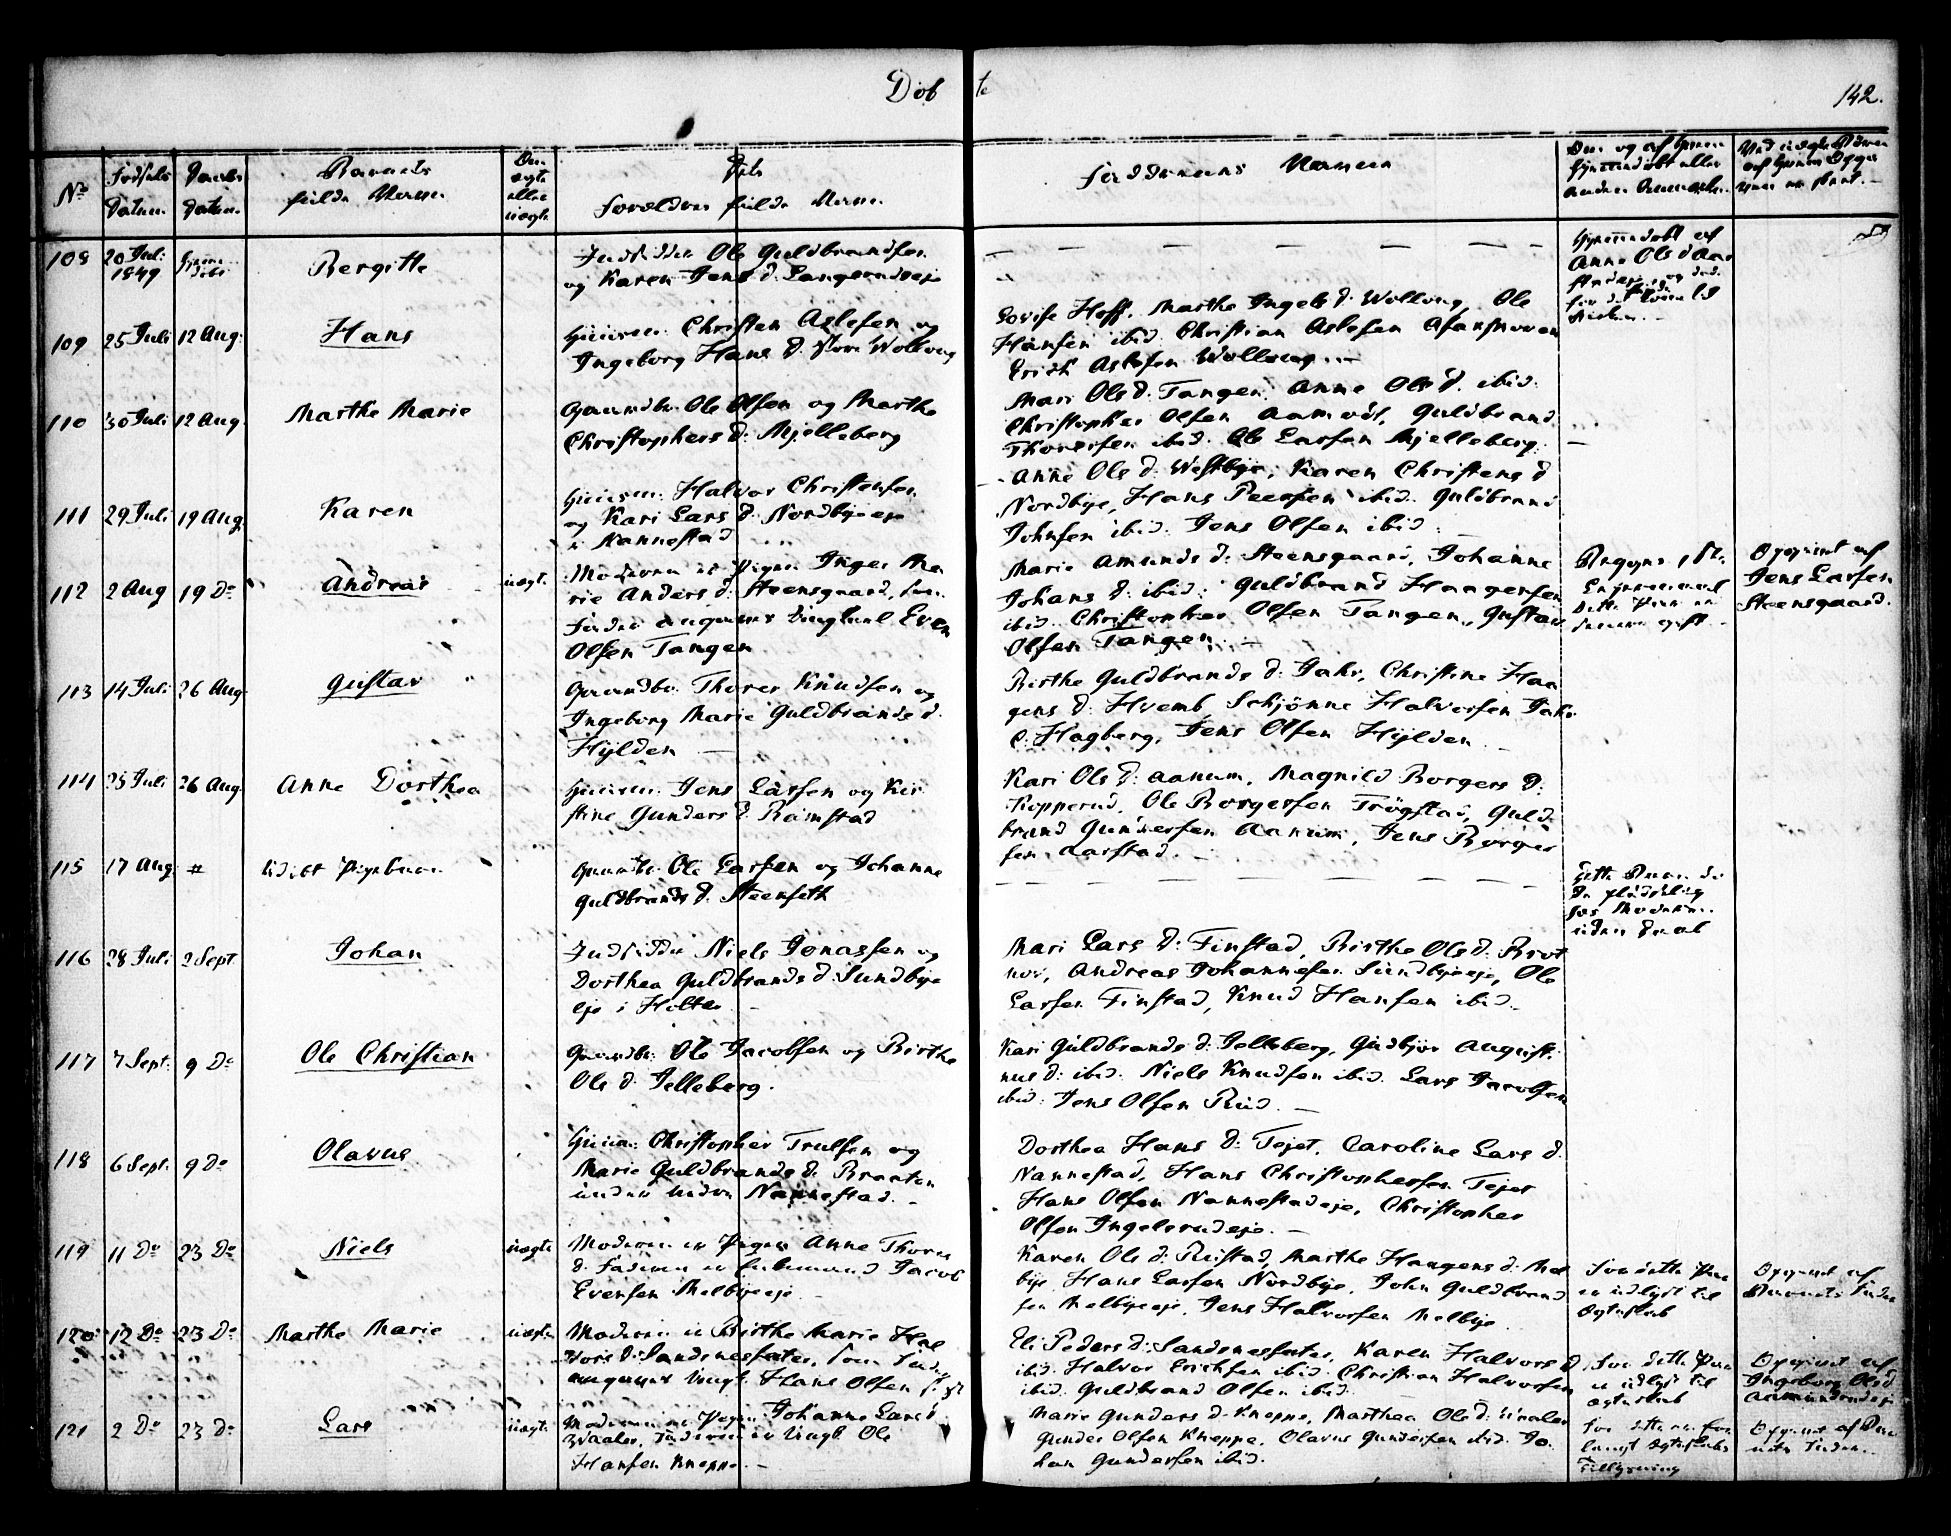 Døbte
142.
No
Fødsels Datum.
Daabs Datum.
Barnets fulde Navn.
Om ægte eller uægte
Dets Forældres fulde Navne.
Faddernes Navne
Om og af hvem hjemmedøbt eller anden Anmærkn.
108
20 Juli 1849
Hjemme døbt
Bergitte
Indsidder Ole Guldbrandsen
og Karen Jens d.
Hjemmedøbt af
Anne Ols d
109
25 Juli
12 Aug:
Hans
Huusm: Christen Aslesen og
Ingeborg Hans d.
Lovise Hoff. Marthe Ingels d. Wollaug, Ole
Hansen ibid. Christian Aslesen
Erich Aslesen Wollaug.
110
30 Juli
12 Aug.
Marthe Marie
Gaardbr. Ole Olsen og Marthe
Christophers d: Mjelleberg
Mari Ols d. Tangen, Anne Ols d. ibid.
Christopher Olsen Aamodt, Guldbrand
Thoresen ibid. Ole Larsen Mjelleberg.
111
29 Juli
19 Aug.
Karen
Huusm: Halvor Christensen
og Kari Lars d. Nordbyeeje
i Nannestad
Anne Ols d: Westbye, Karen Christens d
Nordbye, Hans Peersen ibid. Guldbrand
Johnsen ibid. Jens Olsen ibid
112
2 Aug
19 Do
Andreas
uægte
Moderen er Pigen Inger Ma
rie Anders d: Steensgaard, som
Fader angives Ungkarl Even
Olsen Tangen
Marie Amunds d. Steensgaard, Johanne
Johans d: ibid. Guldbrand Haagensen
ibid. Christopher Olsen Tangen, Gustav
Olsen Tangen.
Opgivet af
Jens Larsen
Steensgaard.
113
14 Juli
26 Aug.
Gustav
Gaardbr. Thorer Knudsen og
Ingeborg Marie Guldbrands d.
Hylden
Birthe Guldbrands d. Jahr, Christine Haa
gens d. Hvemb Schjønne Halvorsen Jahr
C. Hagberg, Jens Olsen Hylden
114
25 Juli
26 Aug.
Anne Dorthea
Huusm: Jens Larsen og Kir
stine Gunders d. Ramstad
Kari Ols d: Aanum, Magnild Borgers d.
Kopperud, Ole Borgersen Trøgstad, Guld
brand Gundersen Aanum, Jens Borger
sen Aarstad.
115
17 Aug
#
udøbt Pigebarn
Gaardbr. Ole Larsen og Johanne
Guldbrands d. Steenseth
116
28 Juli
2 Sept
Johan
Indsidder Niels Jonassen og
Dorthea Guldbrands d. Sundbye
eje i Holter
Mari Lars d: Finstad, Birthe Ols d.
Andreas Johannesen Sundbyeeje, Ole
Larsen Finstad, Knud Hansen ibid.
117
7 Sept:
9 Do
Ole Christian
Gaardbr: Ole Jacobsen og Birthe
Ols d. Jelleberg.
Kari Guldbrands d. Jelleberg, Gudbjør August
nus d: ibid. Niels Knudsen ibid. Lars Jacobsen
ibid: Jens Olsen Rud.
118
6 Sept:
9 Do
Olavus
Huusm: Christopher Trulsen og
Marie Guldbrands d. Braaten
under nedre Nannestad.
Dorthea Hans d: Tejet, Caroline Lars d.
Nannestad, Hans Christophersen Tejet
Hans Olsen Nannestadeje, Christopher
Olsen Ingelsrudeje.
119
11 Do
23 Do
Niels
uægte
Moderen er Pigen Anne Thores
d. Faderen er Enkemand Jacob
Evensen Melbyeeje
Karen Ols d: Ruistad, Marthe Haagens d. Mel
bye Hans Larsen Nordbye, John Guldbrand
sen Melbyeeje, Jens Halvorsen Melbye
For dette Par
er udlyst til
Ægteskab
Opgivet af
Barnets Fader
120
12 Do
23 Do
Marthe Marie
uægte
Moderen er Birthe Marie Hal
vors d: Sandsnesfeaten, som Fader
angives Ungk. Hans Olsen
Eli Peders d: Sandsnesfeaten, Karen Halvors d
ibid. Halvor Erichsen ibid. Christian Halvorsen
ibid. Guldbrand Olsen ibid.
For dette Par
er udlyst til
Ægteskab
Opgivet af
Ingeborg Ols d
121
2 Do
23 Do
Lars
uægte
Moderen er Pigen Johanne Lars d
Faderen er Ungk. Ole
Hansen Kneppe.
Marie Gunders d. Kneppe, Marthea Ols d:
Gunder Olsen Kneppe, Olavus Gundersen ibid. Jo
han Gundersen ibid.
langt Ægteskabs
Tillysning
Opgivet af Bar
nets Fader.